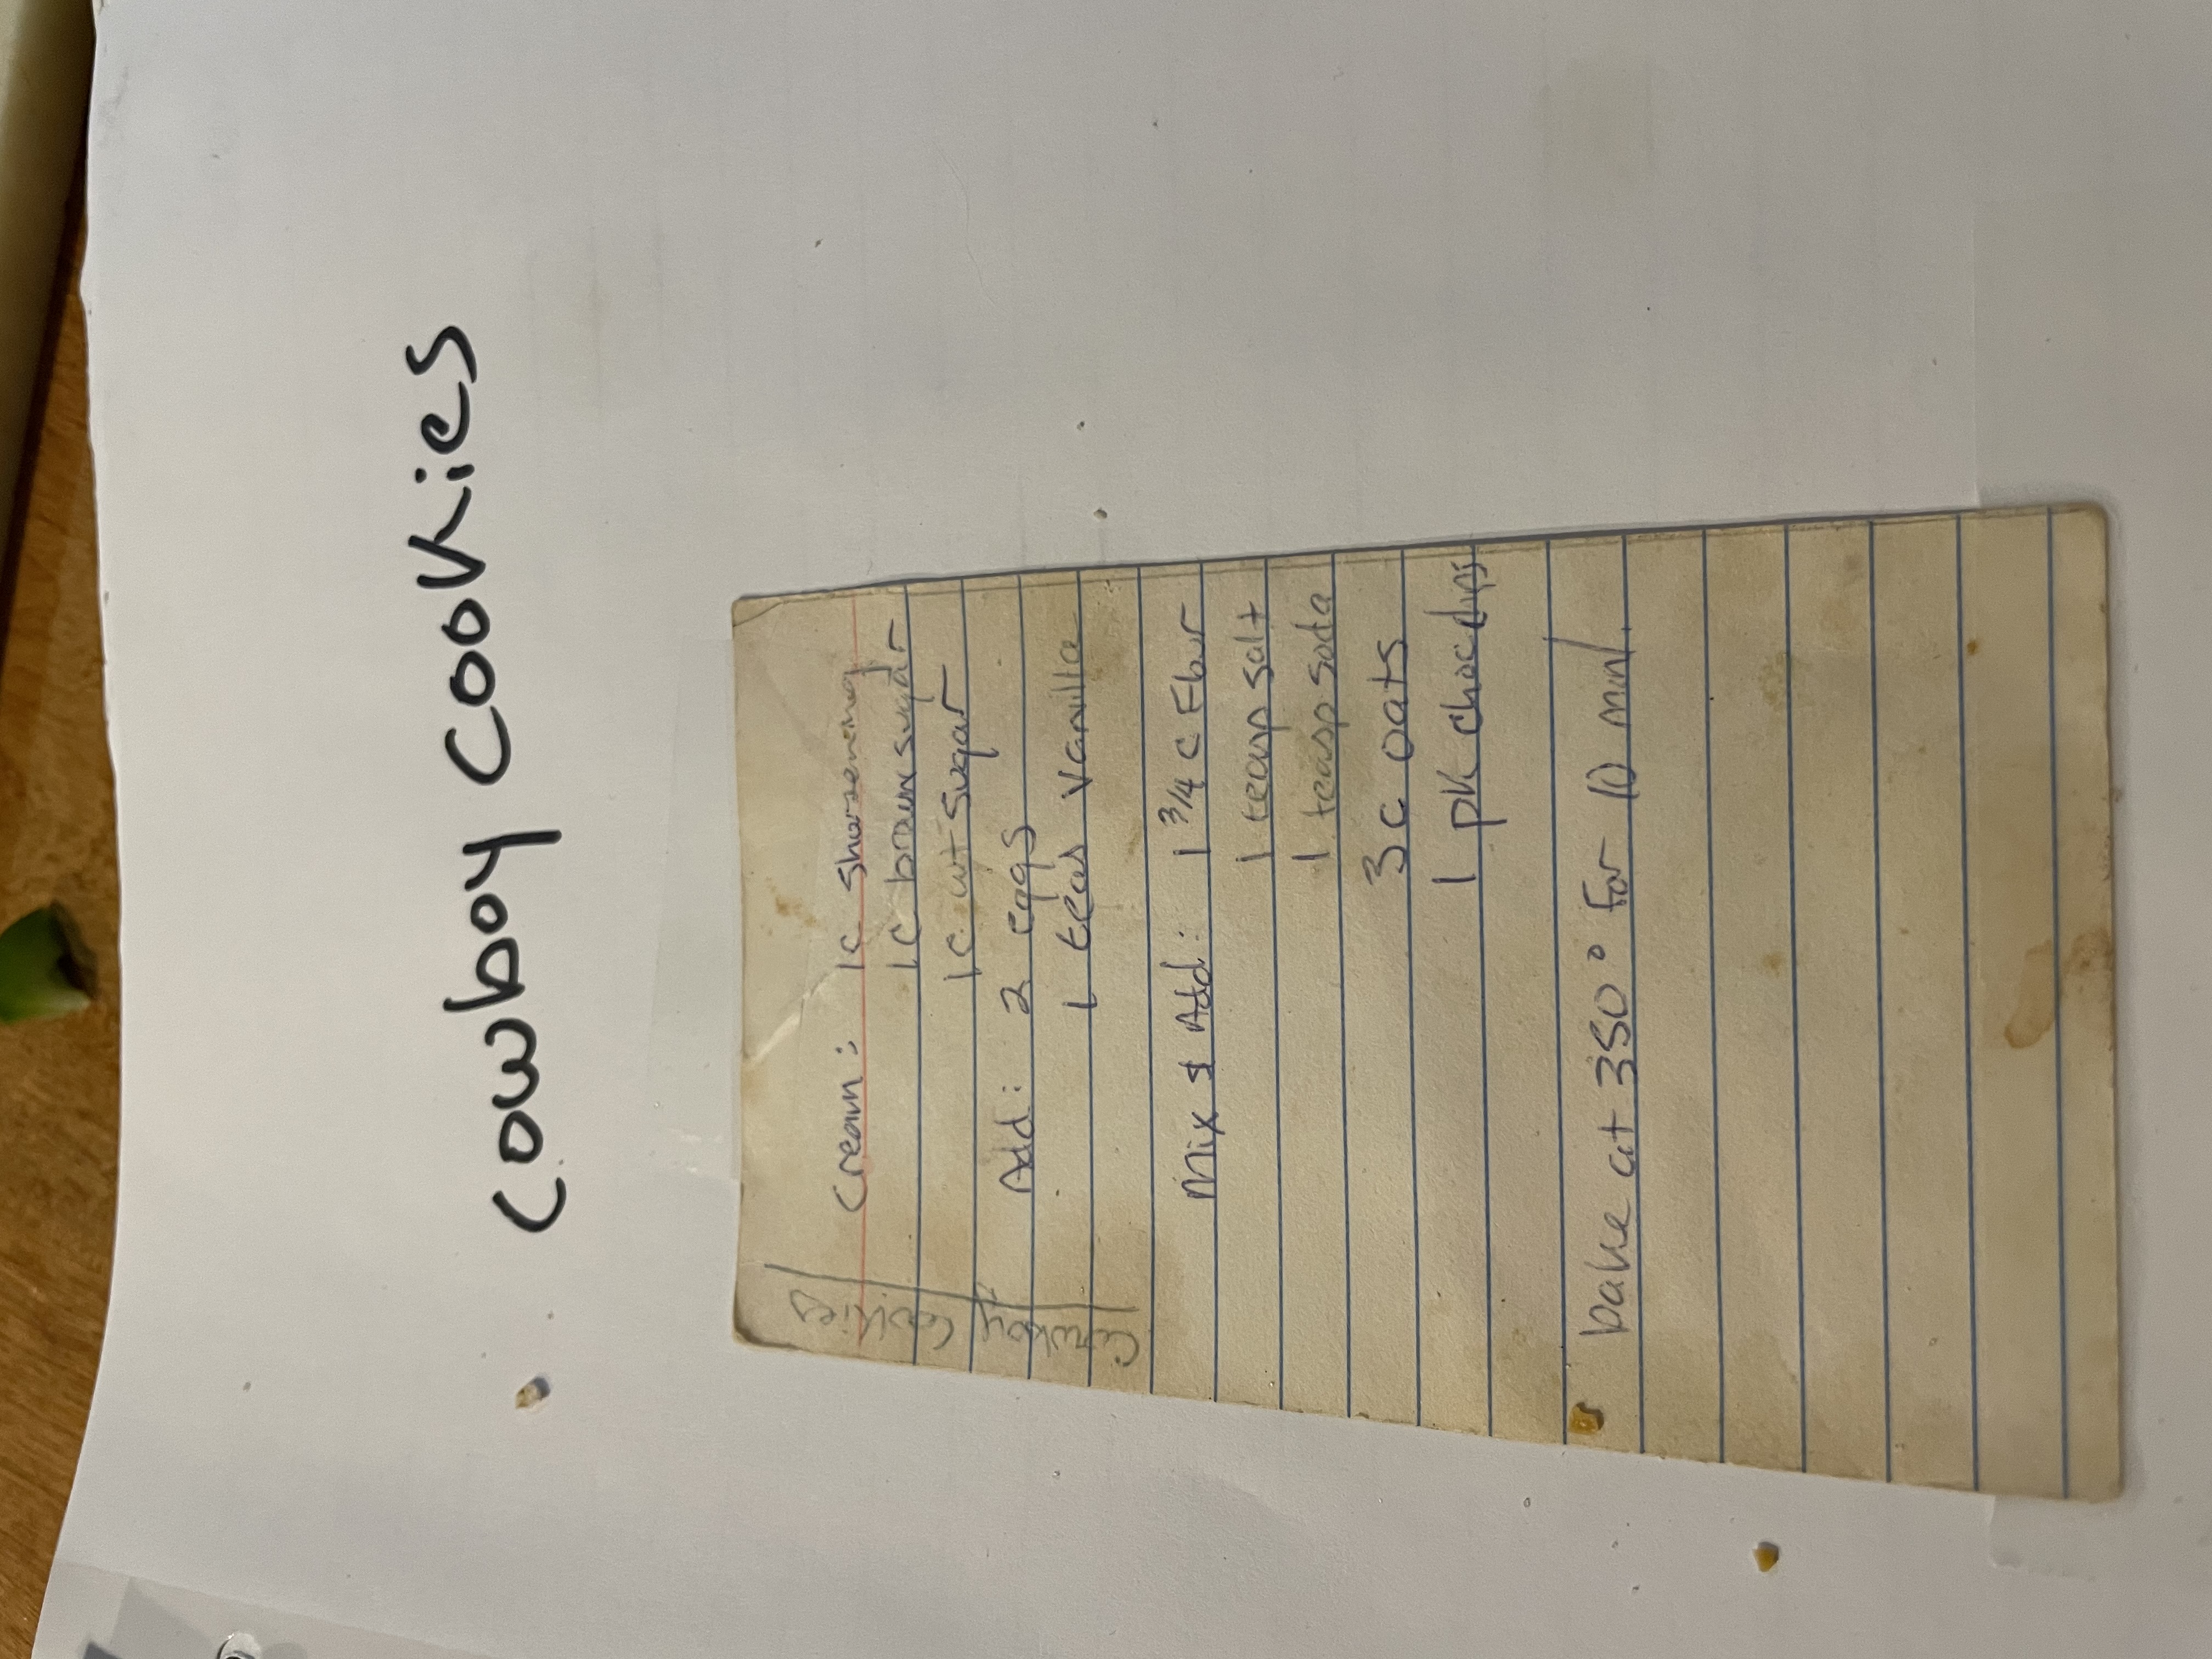 cowboy cookies
Cowboy Cookies
Cream: 1c shortening
1c brown sugar
1c wt sugar
Add: 2 eggs
1 teas vanilla
Mix & Add: 1 3/4 c Flour
1 teasp salt
1 teasp soda
3c oats
1 pk choc chips
bake at 350° for 10 min.